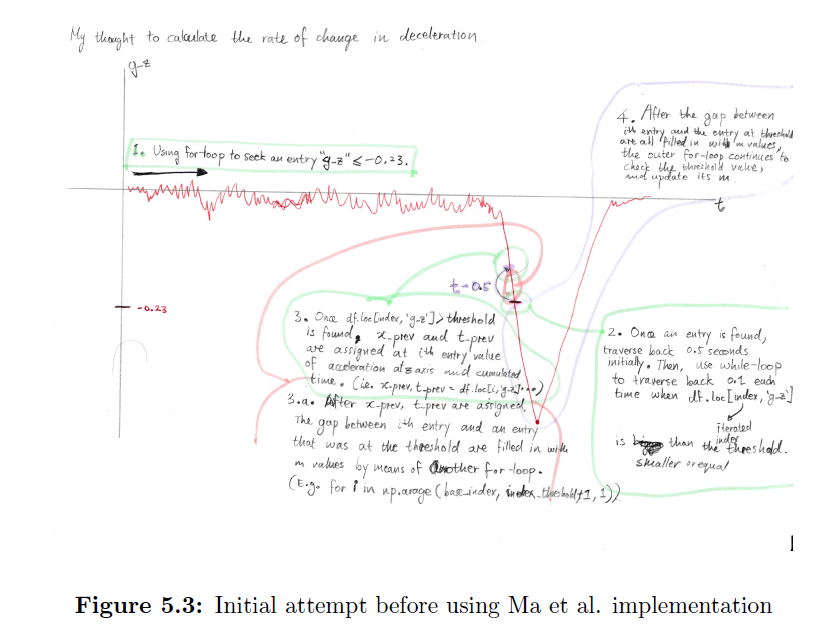 My thought to calculate the rate of change in deceleration.
g-z
1. Using for-loop to seek an entry "g-z" ≤ -0.23.
4. After the gap between
ith entry and the entry at threshold
are all filled in with m values,
the outer for-loop continues to
check the threshold value,
and update its m.
t
t-0.5
-0.23
3. Once df.loc[index, 'g-z'] > threshold
is found, x-prev and t-prev
are assigned at ith entry value
of acceleration at z axis and cumulated
time. (i.e. x-prev, t-prev = df.loc[i, 'g-z']...)
3.a. After x-prev, t-prev are assigned.
The gap between ith entry and an entry
that was at the threshold are filled in with
m values by means of another for-loop.
(E.g. for i in np.arage (base_index, index_threshold+1, 1))
2. Once an entry is found,
traverse back 0.5 seconds
initially. Then, use while-loop
to traverse back 0.1 each
time when df.loc[index, 'g-z']
iterated
index
is than the threshold.
smaller or equal
Figure 5.3: Initial attempt before using Ma et al. implementation